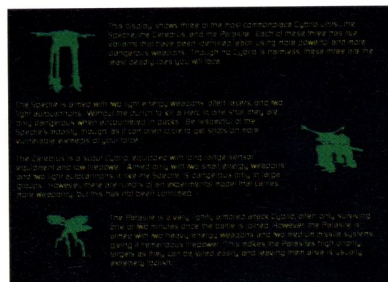 This display shows three of the most commonplace Cybrid units... the
Spectre, the Cerebrus, and the Parasite. Each of these three has five
variants that have been identified, each using more powerful and more
dangerous weapons. Though no Cybrid is harmless, these three are the
least deadly foes you will face.
The Spectre is armed with two light energy weapons, often lasers, and two
light autocannons. Without the to kill a Herc in one shot, they are
only dangerous when encountered in packs. Be respectful of the
Spectre's mobility though, as it can often circle to get shots on more
vulnerable elements of your force.
The Cerebrus is a scout Cybrid, equipped with long range sensor
equipment and low firepower. Armed only with two small energy weapons
and two light autocannons, it, like the Spectre is dangerous only in large
groups. However, there are rumors of an experimental model that carries
more weaponry, but this has not been confirmed.
The Parasite is a very lightly armored attack Cybrid, often only surviving
one or two minutes once the battle is joined. However, the Parasite is
armed with two heavy energy weapons and two medium missile systems,
giving it tremendous firepower. This makes the Parasites high priority
targets, as they can be killed easily, and leaving them alive is usually
extremely foolish.